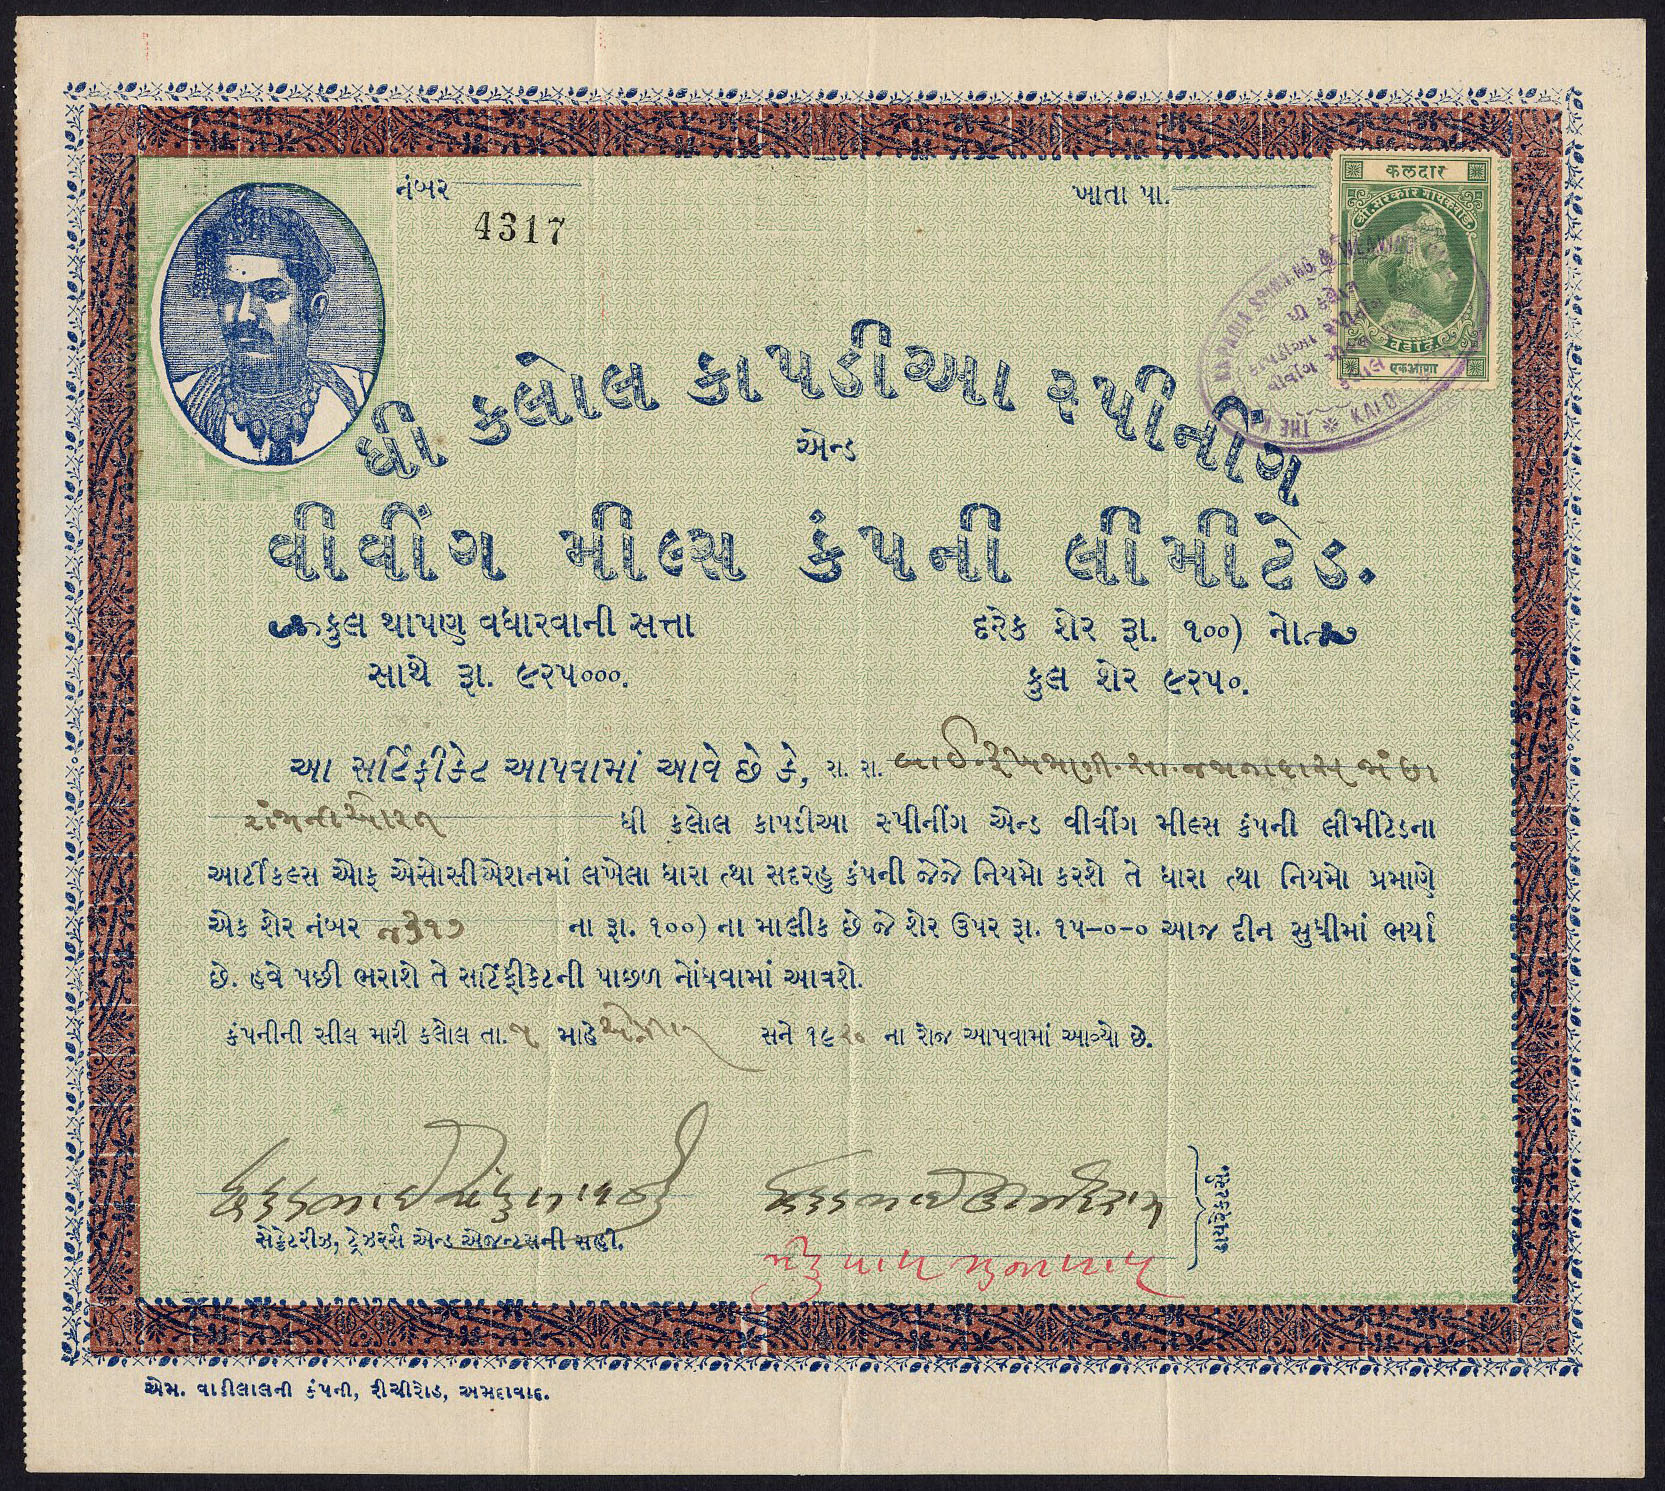 નંબર
4317
ખાતા પા.
कलदार
एकआणा
ધી કલોલ કાપડીઆ સ્પીનીંગ
એન્ડ
વીવીંગ મીલ્સ કંપની લીમીટેડ.
કુલ થાપણ વધારવાની સત્તા
સાથે રૂા. ૯૨૫૦૦૦.
દરેક શેર રૂા. ૧૦૦) નો
કુલ શેર ૯૨૫૦.
આ સર્ટિફીકેટ આપવામાં આવે છે કે, રા. રા. બાઈ
ધી કલોલ કાપડીઆ સ્પીનીંગ એન્ડ વીવીંગ મીલ્સ કંપની લીમીટેડના
આર્ટીકલ્સ ઓફ એસોસીએશનમાં લખેલા ધારા તથા સદરહુ કંપની જેજે નિયમો કરશે તે ધારા તથા નિયમો પ્રમાણે
એક શેર નંબર ૪૩૧૭ ના રૂા. ૧૦૦) ના માલીક છે જે શેર ઉપર રૂા. ૧૫-૦-૦ આજ દીન સુધીમાં ભર્યા
છે. હવે પછી ભરાશે તે સર્ટિફીકેટની પાછળ નોંધવામાં આવશે.
કંપનીની સીલ મારી કલોલ તા. માહે સને ૧૯૨૦ ના રોજ આપવામાં આવ્યો છે.
સેક્રેટરીઝ, ટ્રેઝરર્સ એન્ડ એજન્ટસની સહી.
ડાયરેકટર્સ.
એમ. વાડીલાલની કંપની, રીચીરોડ, અમદાવાદ.